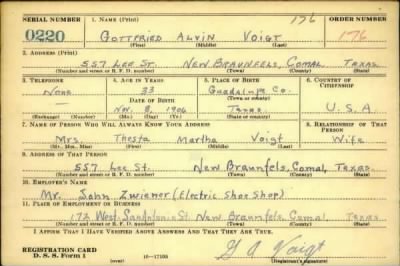 SERIAL NUMBER 1. NAME (Print) 176 ORDER NUMBER
0220 GOTTFRIED ALVIN VOIGT 176
(First) (Middle) (Last)
2. ADDRESS (Print)
557 LEE ST. NEW BRAUNFELS, COMAL, TEXAS
(Number and street or R. F. D. number) (Town) (County) (State)
3. TELEPHONE 4. AGE IN YEARS 5. PLACE OF BIRTH 6. COUNTRY OF CITIZENSHIP
None 33 Guadalupe Co.
DATE OF BIRTH (Town or county)
Nov. 8, 1906 Texas U. S. A
(Exchange) (Number) (Mo.) (Day) (Yr.) (State or country)
7. NAME OF PERSON WHO WILL ALWAYS KNOW YOUR ADDRESS 8. RELATIONSHIP OF THAT PERSON
Mrs. Martha Voigt Wife
(Mr., Mrs., Miss) (First) (Middle) (Last)
9. ADDRESS OF THAT PERSON
557 Lee St. New Braunfels, Comal, Texas
(Number and street or R. F. D. number) (Town) (County) (State)
10. EMPLOYER'S NAME
Mr. John (Electric Shoe Shop)
11. PLACE OF EMPLOYMENT OR BUSINESS
172 West San Antonio St. New Braunfels, Comal, Texas
(Number and street or R. F. D. number) (Town) (County) (State)
I AFFIRM THAT I HAVE VERIFIED ABOVE ANSWERS AND THAT THEY ARE TRUE.
REGISTRATION CARD
D. S. S. Form 1 16—17105 G A Voigt
(Registrant's signature)